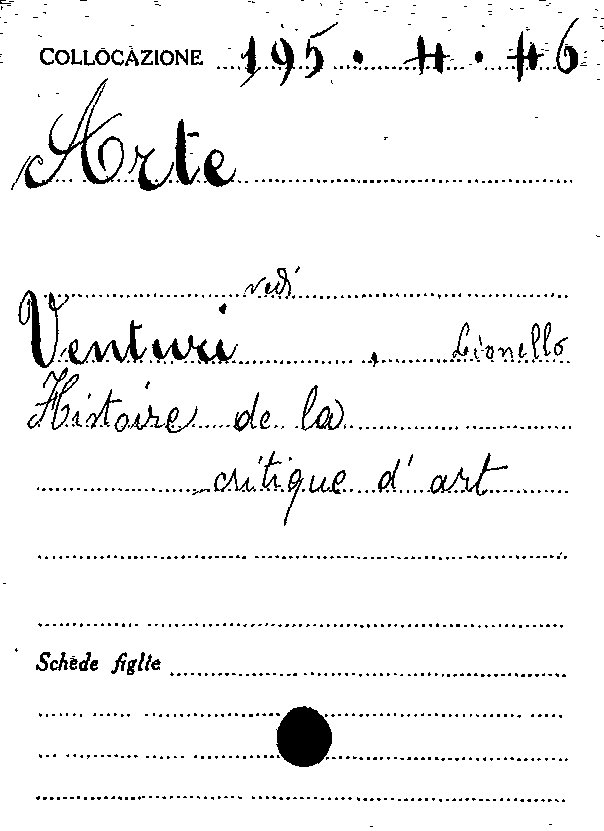 COLLOCAZIONE 195 .
Arte
vedi
Venturi, Lionello
Histoire de la
critique d'art
Schede figlie